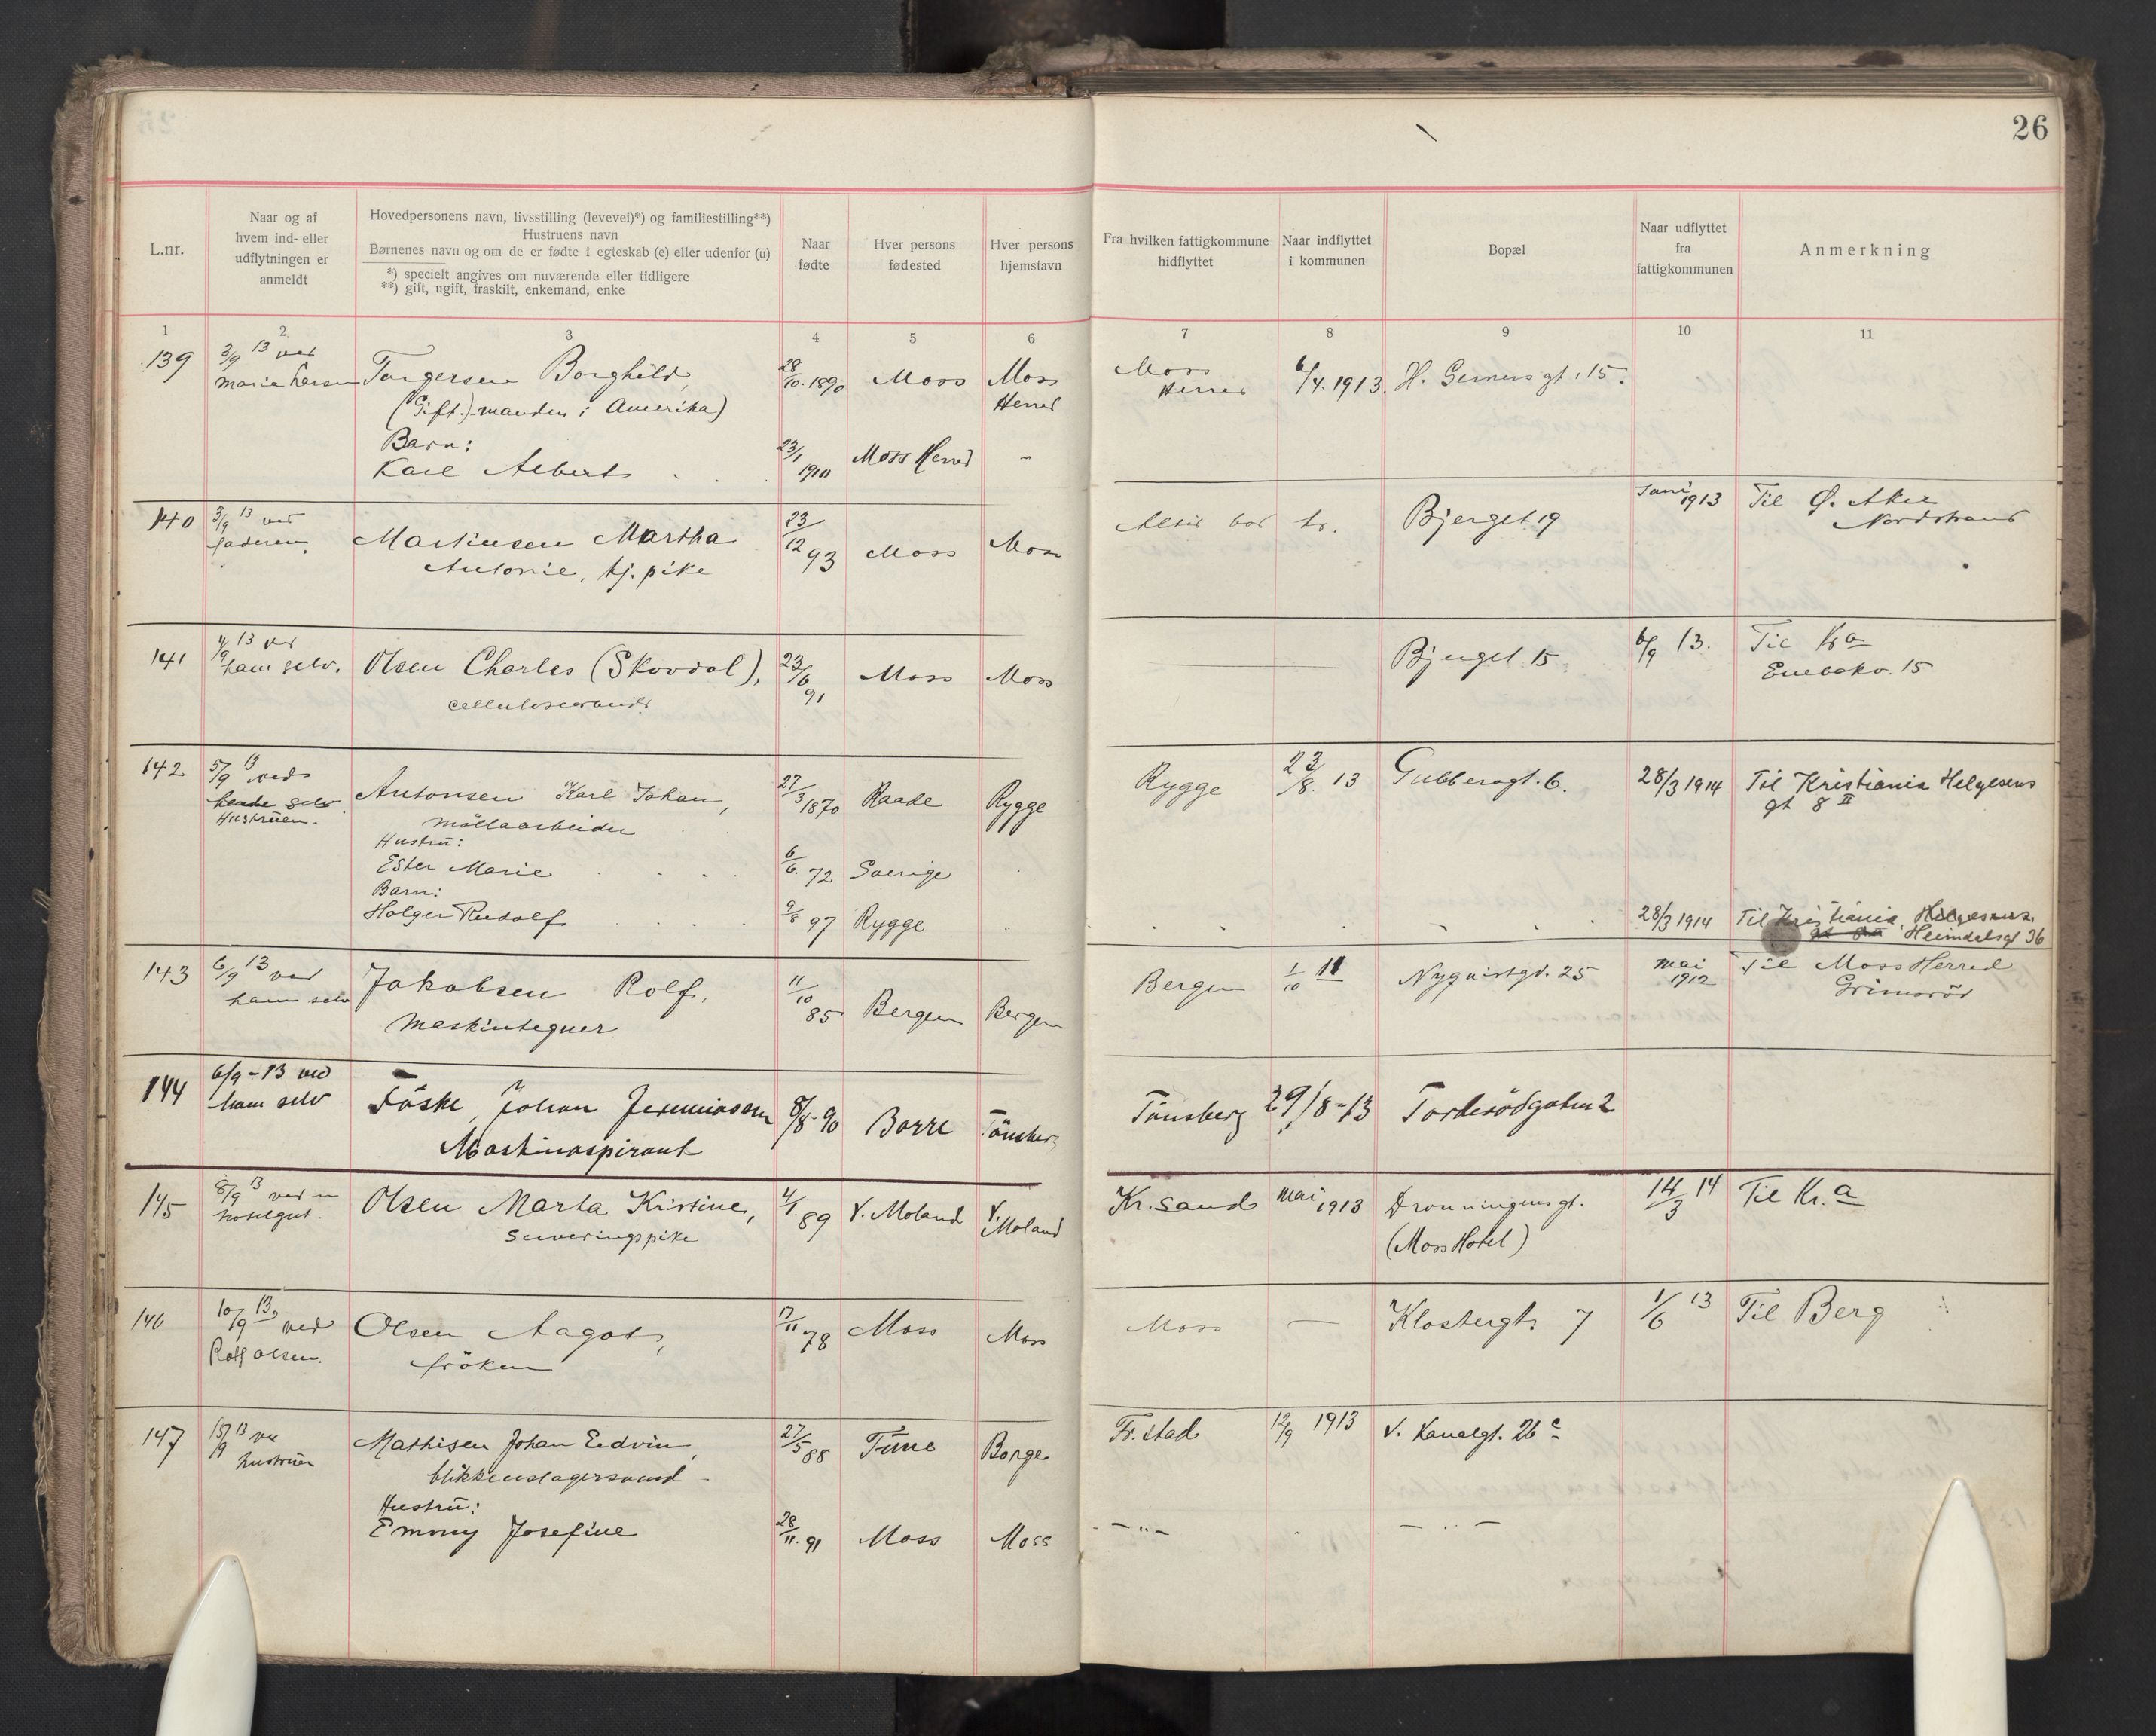 26
L.nr.
Naar og af
hvem ind- eller
udflytningen er
anmeldt
Hovedpersonens navn, livsstilling (levevei)*) og familiestilling**)
Hustruens navn
Børnenes navn og om de er fødte i egteskab (e) eller udenfor (u)
*) specielt angives om nuværende eller tidligere
**) gift, ugift, fraskilt, enkemand, enke
Naar
fødte
Hver persons
fødested
Hver persons
hjemstavn
Fra hvilken fattigkommune
hidflyttet
Naar indflyttet
i kommunen
Bopæl
Naar udflyttet
fra
fattigkommunen
Anmerkning
1 2 3 4 5 6 7 8 9 10 11
139 3/9 13 ved Torgersen Borghild, 28/10.1890 Moss Moss Moss 6/4.1913. H. Gerners gt. 15.
Maria Larsen (Gift.) manden i Amerika) Herred Herred
Barn:
Karl Albert 23/1 1910 Moss Herred "
140 3/9 13 ved Martinsen Martha 23/12 93 Moss Moss Altid bod hr. Bjerget 19 Juni 1913 Til Ø. Aker
faderen. Antonie, tj. pike Nordstrand
141 4/9 13 ved Olsen Charles (Skovdal), 23/6 91 Moss Moss — Bjerget 15. 6/9 13. Til Kra
ham selv. cellulosearbeider Enebakv. 15
142 5/9 13 ved Antonsen Karl Johan, 27/3 1870 Raade Rygge Rygge 23/8. 13 Gubberogt. 6. 28/3 1914 Til Kristiania Helgesens
selv møllearbeider gt 8 II
Hustruen.
Hustru:
Ester Marie 6/6. 72 Sverige
Barn:
Holger Rudolf 9/8 97 Rygge 28/3 1914 Til Kristiania
Heimdalsgt 36
143 6/9 13 ved Jakobsen Rolf, 11/10 85 Bergen Bergen Bergen 1/10 11 Nyquistgt. 25 Mai 1912 Til Moss Herred
ham selv Maskintegner Grimsrød
144 6/9-13 ved Föske, Johan Jeremiassen 8/8-90 Borre Tönsberg Tönsberg 29/8-13 Torderödgaten 2
ham selv Maskinaspirant
145 8/9 13 ved Olsen Marta Kristine, 4/1. 89 V. Moland V. Moland Kr.sand Mai 1913 Dronningensgt. 14/3 14 Til Kr.a
hotelgut. Serveringspike (Moss Hotel)
146 10/9 13, ved Olsen Aagot, 17/11 78 Moss Moss Moss — Klostergt. 7 1/6 13 Til Berg
Rolf Olsen. frøken
147 15/9 13 ved Mathisen Johan Edvin, 27/5 88 Tune Borge Fr.stad 12/9 1913 V. Kanalgt. 26 c
hustruen blikkenslagersvend
Hustru:
Emmy Josefine 28/11. 91 Moss Moss — " — — " —